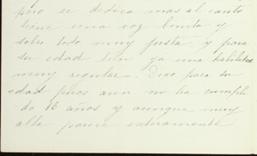 pero se dedica mas al canto
tiene una voz bonita y
sobre todo muy justa y para
su edad tiene ya una habilidad
muy regular. Digo para su
edad pues aun no ha cumplido
de 18 años y aunque muy
alta parece